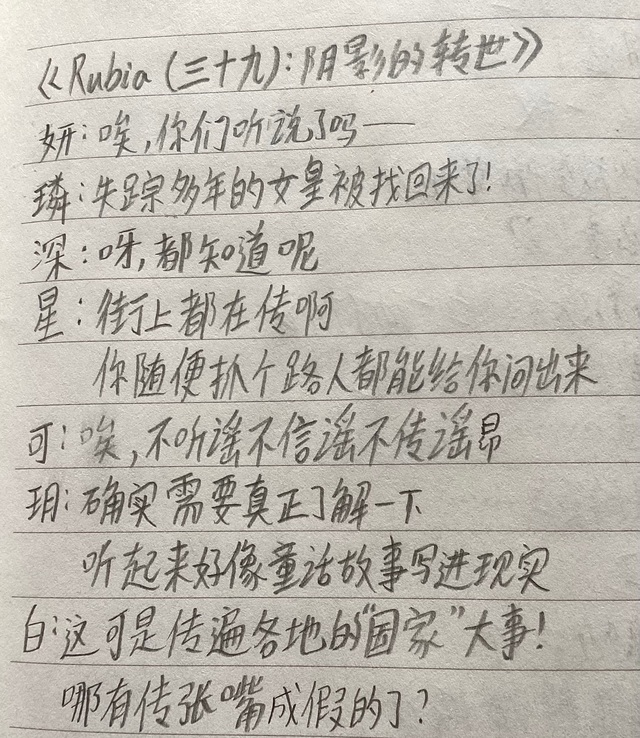 《Rubia（三十九）：阴影的转世》
妍：唉，你们听说了吗——
璘：失踪多年的女皇被找回来了！
深：呀，都知道呢
星：街上都在传啊
你随便抓个路人都能给你问出来
可：唉，不听谣不信谣不传谣昂
玥：确实需要真正了解一下
听起来好像童话故事写进现实
白：这可是传遍各地的“国家”大事！
哪有传张嘴成假的了？